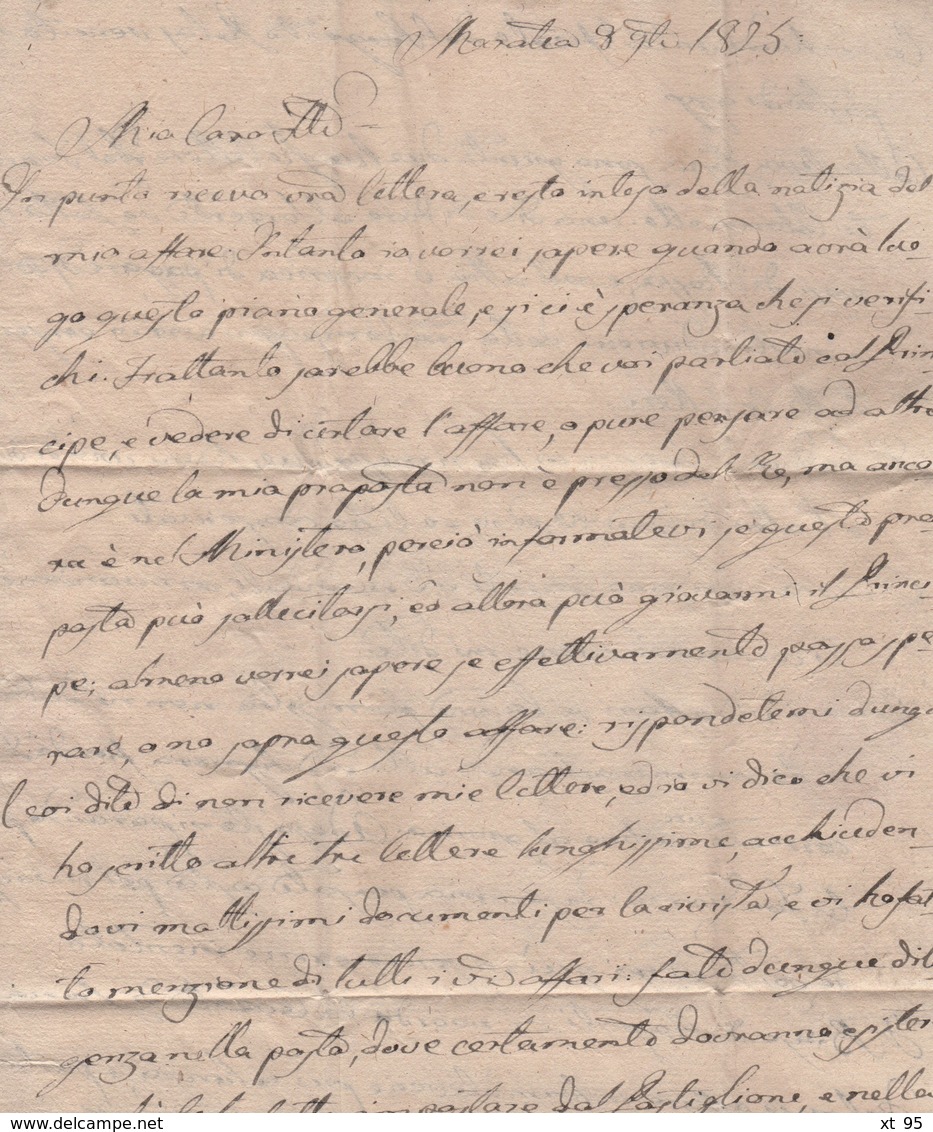 Maratea 8 9bre 1825
Mio Caro
In punto ricevo vra lettera, e resto inteso della notizia del
mio affare. Intanto io vorrei sapere quando avrà luo-
go questo piano generale, e si ci è speranza che si verifi-
chi. Frattanto sarebbe buono che voi parliate col Prin
cipe, e vedere di certare l'affare, o pure pensare ad altro
Dunque la mia proposta non è presso del Re, ma anco
ra è nel Ministero, perciò informatevi se questa pro
posta può sollecitarsi, ed allora può giovarmi il Princi
pe; almeno vorrei sapere se effettivamente posso spe
rare, o no sopra questo affare: rispondetemi dunq
Voi dite di non ricevere mie lettere, ed io vi dico che vi
ho scritto altre tre lettere lunghissime, acchiuden
dovi moltissimi documenti per la rivista, e vi ho fat
to menzione di tutti i vri affari: fate dunque dili
genza nella posta, dove certamente dovranno esister
impostare dal Postiglione, e nella
xt 95